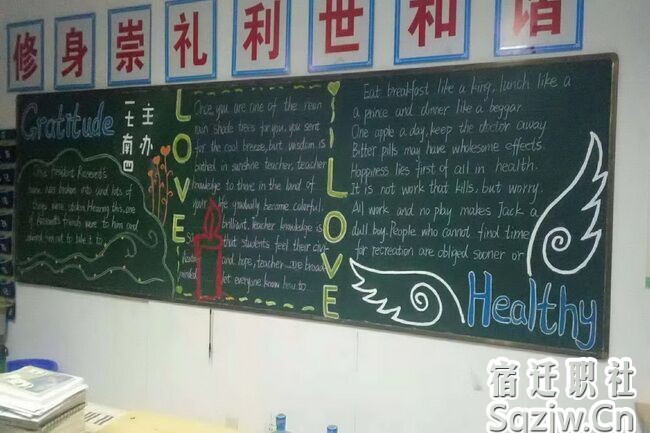 修身崇礼利世和谐
Gratitude
主办
一七南四
Once President Roosevelt's
broken into and lots of
things were stolen. Hearing this, one
of friends to him and
him not to take it
LOVE
Once you are one of the
shade trees for you, you sent
for the cool breeze, but wisdom is
bathed in sunshine teacher, teacher
knowledge to thine in the land of
your gradually become colorful.
brilliant. Teacher knowledge is
that students feel their
and hope, teacher we broad
let everyone know how to
I LOVE
Eat breakfast like a king, lunch like
a prince and dinner like a beggar.
One apple a day, keep the doctor away
Bitter pills may have wholesome effects.
Happiness lies first of all in health.
It is not work that kills, but worry.
All work and no play makes Jack a
dull boy. People who cannot find time
for recreation are obliged sooner or
Healthy
宿迁职社
Sqzjw.Cn